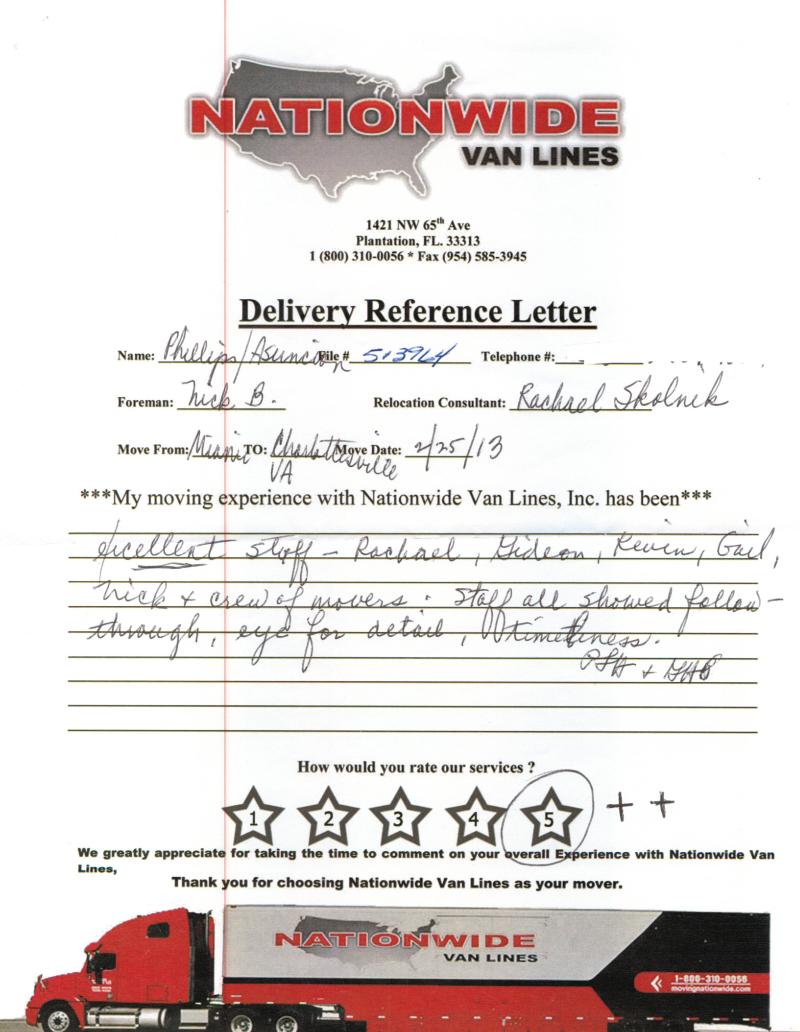 NATIONWIDE
VAN LINES
1421 NW 65th Ave
Plantation, FL. 33313
1 (800) 310-0056 * Fax (954) 585-3945
Delivery Reference Letter
Name: Phillips/Asuncion File # 513964 Telephone #:
Foreman: Nick B. Relocation Consultant: Rachael Skolnik
Move From: Miami TO: Charlottesville VA Move Date: 2/25/13
***My moving experience with Nationwide Van Lines, Inc. has been***
excellent staff - Rachael, Gideon, Kevin, Gail,
Nick + crew of movers. Staff all showed follow-
through, eye for detail, timeliness.
How would you rate our services ?
1 2 3 4 5 ++
We greatly appreciate for taking the time to comment on your overall Experience with Nationwide Van
Lines,
Thank you for choosing Nationwide Van Lines as your mover.
NATIONWIDE
VAN LINES
1-800-310-0056
movingnationwide.com